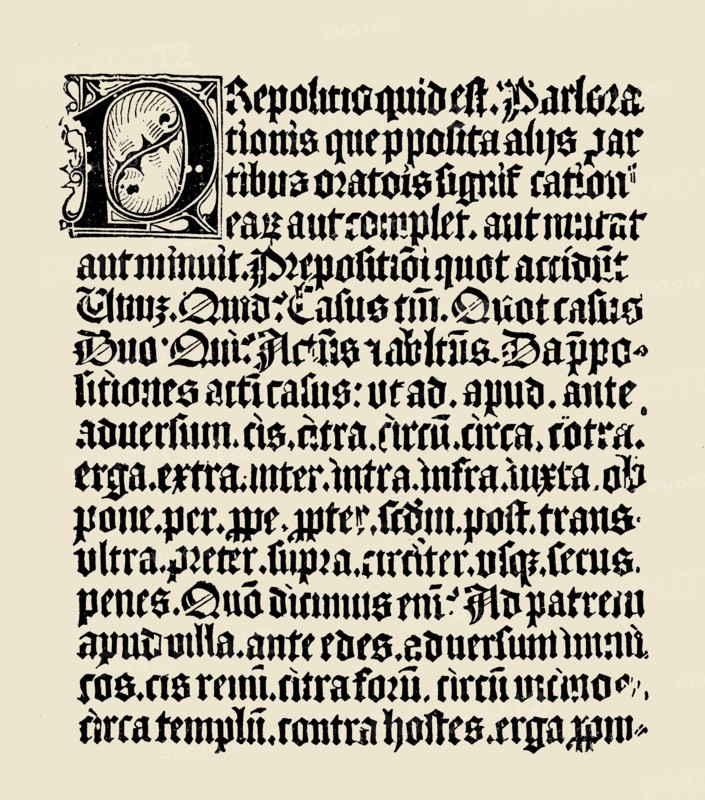 PRepositio quid est. Pars ora
tionis que pposita alijs par
tibus oratõis significationẽ
eaꝝ aut complet. aut mutat
aut minuit. Prepositiõi quot accidũt
Unuz. Quid? Casus tm̃. Quot casus
Duo Qui? Actũs ⁊ ablt̃us. Da p̃po-
sitiones acti casus: vt ad. apud. ante
aduersum. cis. citra. circũ. circa. cõtra.
erga. extra. inter. intra. infra. iuxta. ob
pone. per. ꝓpe. ꝓpter. scdm̃. post. trans.
vltra. preter. supra. circiter. vsqꝫ. secus.
penes. Quõ dicimus eni᷉? Ad patrem
apud villa. ante edes. aduersum inimi
cos. cis renũ. citra forũ. circũ vicinos.
circa templũ. contra hostes. erga ꝓpin-